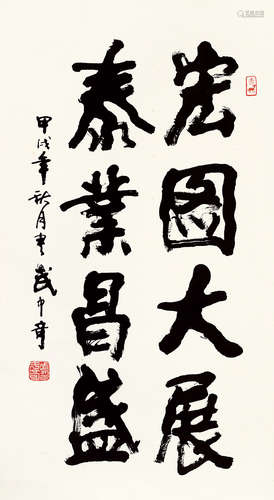 宏图大展
泰業昌盛
甲戌年秋月书武中奇